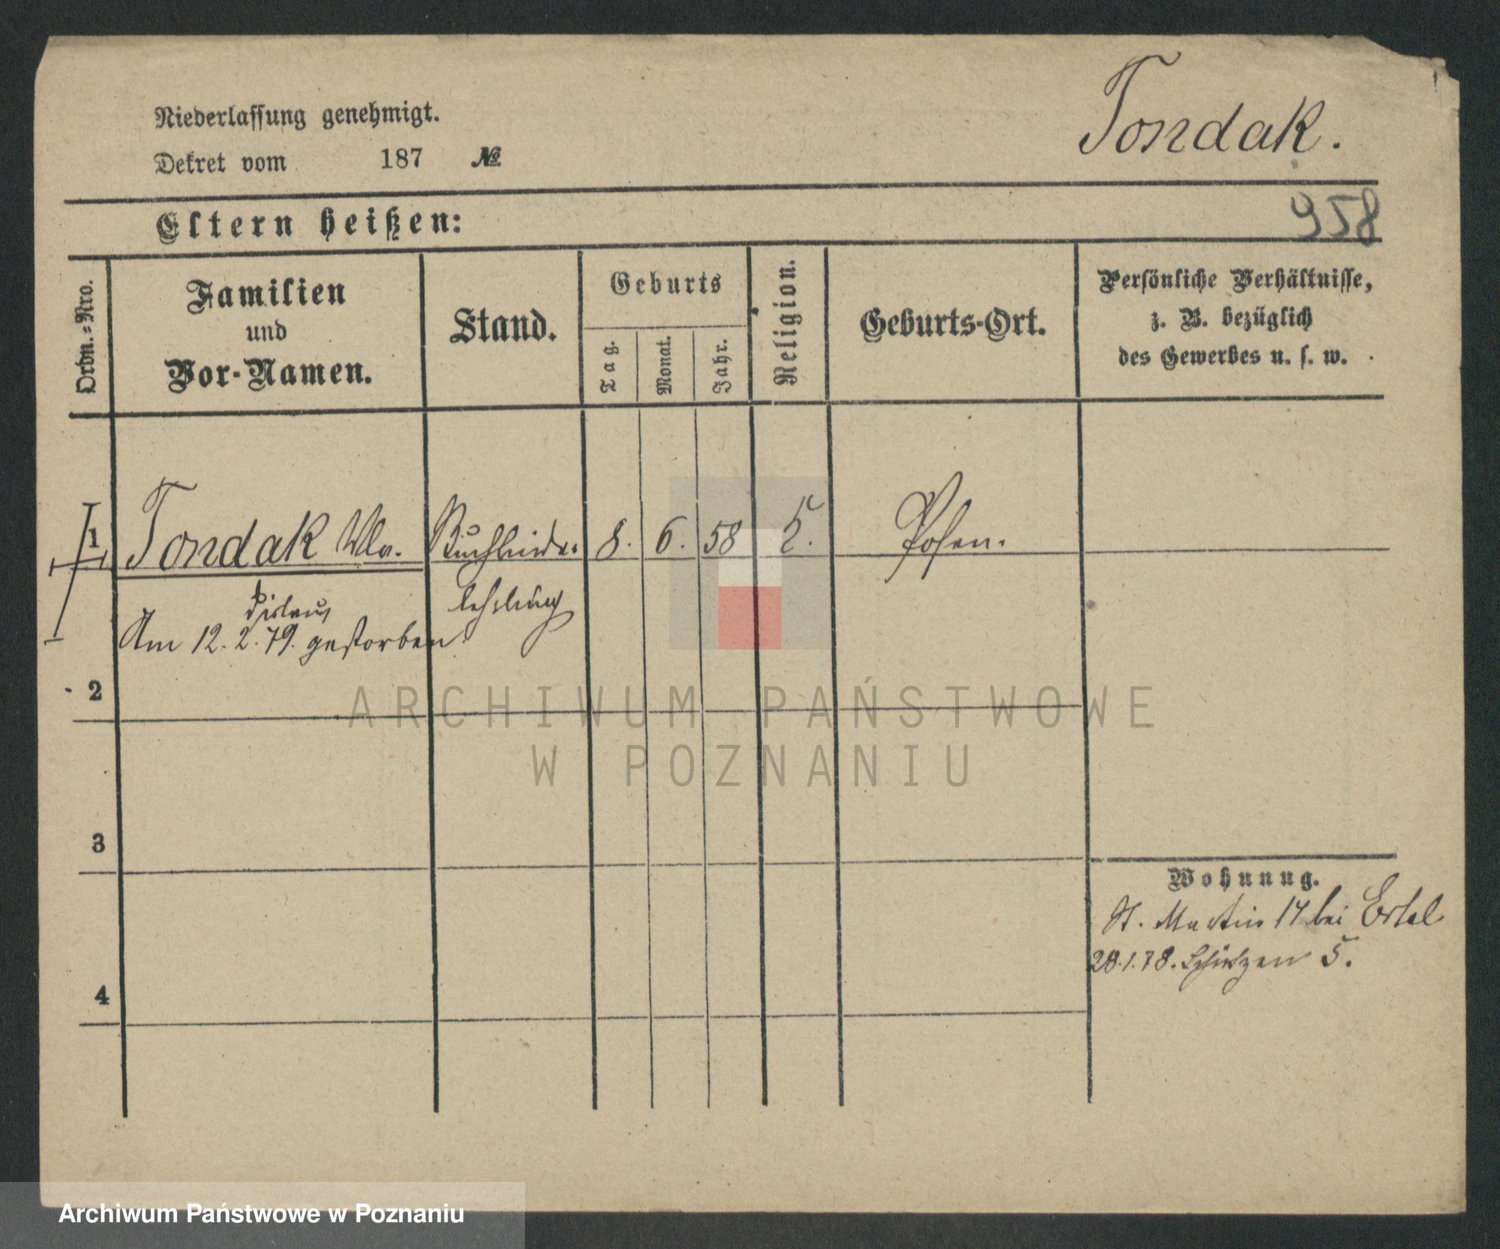 Tondak.
Niederlassung genehmigt.
Dekret vom 187 №
Eltern heißen:
958
Ordn.-Nro.
Familien
und
Vor-Namen.
Stand.
Geburts
Tag.
Monat.
Jahr.
Religion.
Geburts-Ort.
Persönliche Verhältnisse,
z. B. bezüglich
des Gewerbes u. s. w.
1 Tondak Wla. Buchbinder 8. 6. 58 Posen.
dislaus lehrling
Am 12. 2. 79. gestorben
2
3
4
Wohnung.
St. Martin 17 bei Ertel
28.1.78. Schützen 5.
ARCHIWUM PAŃSTWOWE
W POZNANIU
Archiwum Państwowe w Poznaniu